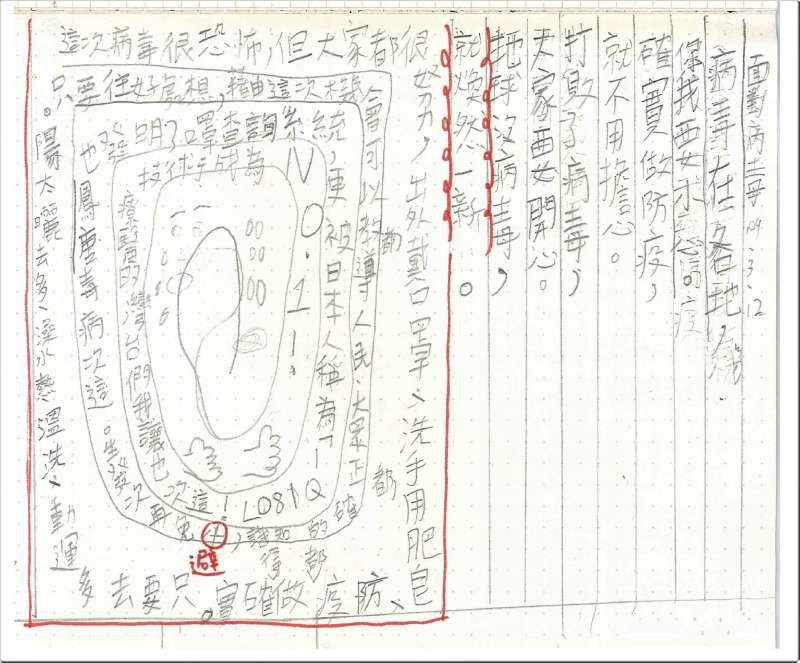 面對病毒 109.3.12
病毒在各地，
你我要
確實做防疫，
就不用擔心。
打敗了病毒，
大家要開心。
地球沒病毒，
就煥然一新。
這次病毒很恐怖，但大家都很
努力，出外戴口罩、洗手用肥皂
、防疫做確實。只要去多
運動、洗溫熱水澡、多去曬太陽。
只要往好處想，藉由這次機會
可以教導人民、大眾正確
的都知識，避免再次
發生。這次病毒唐鳳也
發明了口罩查詢系統，
更被日本人稱為「IQ
180」！這次
也讓我們台灣的醫療
技術成為
NO.1！
都
都
得
避